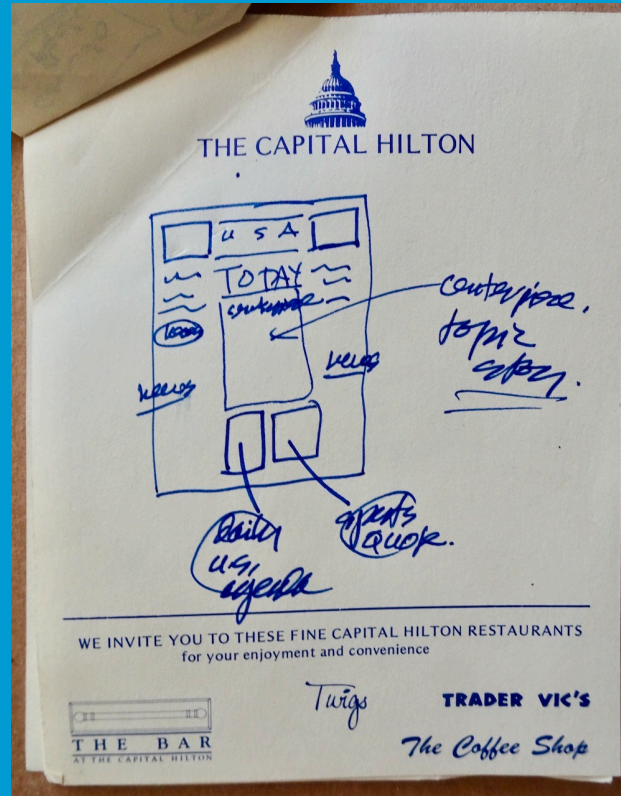 THE CAPITAL HILTON
U S A
TODAY
centerpiece
news
news
centerpiece.
topic
story.
Daily
U.S.
agenda
sports
quote.
WE INVITE YOU TO THESE FINE CAPITAL HILTON RESTAURANTS
for your enjoyment and convenience
Twigs
TRADER VIC'S
THE BAR
AT THE CAPITAL HILTON
The Coffee Shop